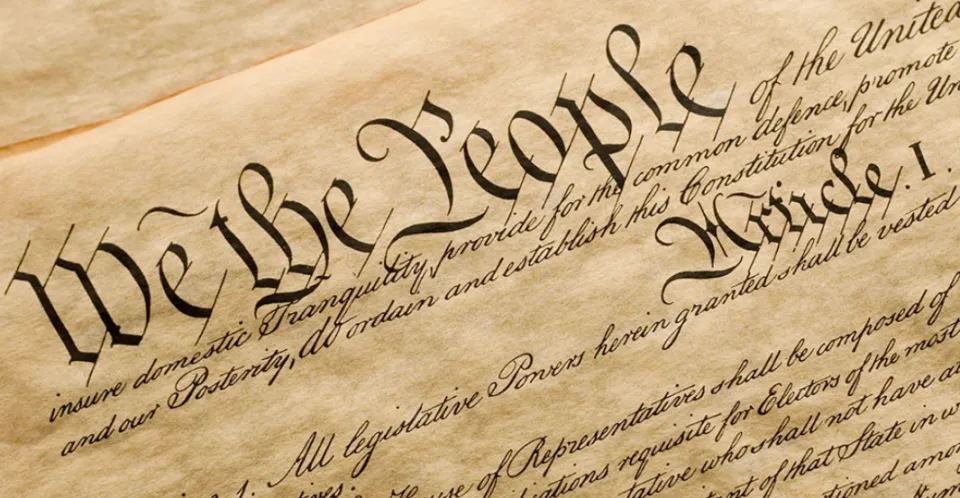 We the People of the United
insure domestic Tranquility, provide for the common defence, promote
and our Posterity, do ordain and establish this Constitution for the Un
Article. I.
All legislative Powers herein granted shall be vested
use of Representatives shall be composed of
ications requisite for Electors of the most
tative who shall not have a
nt of that State in w
tioned amon